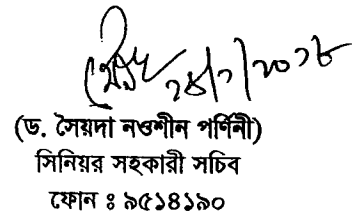 (ড. সৈয়দা নওশীন পর্ণিনী)
সিনিয়র সহকারী সচিব
ফোন ঃ ৯৫১৪১৯০